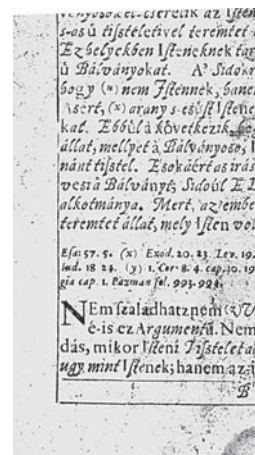 s-as ű tiſzteletivel teremtet
Ez helyekben Iſteneknek tar
ű Bálványokat. A' Sidok
hogy (u) nem Iſtennek, hanem
(x) arany s-ezűſt Iſtene
kat. Ebbűl à következik,
állat, mellyet à Bálványoſo,
nánt tiſztel. Es okáért as írás
veszi à Bálványt; Sidoúl E
alkotmánya. Mert, az embe
teremtet állat, mely Iſten vol
Eſa: 57. 5. (x) Exod. 20. 23. Lev. 19.
Iud. 18 24. (y) 1. Cor. 8. 4. cap. 10. 19
gia cap. 1. Pazman fol. 993. 994.
NEm ſzaladhatz nem
é-is ez Argumentũ. Nem
dás, mikor Iſteni Tiſztelet a
ugy, mint Iſtenek; hanem az-i
B